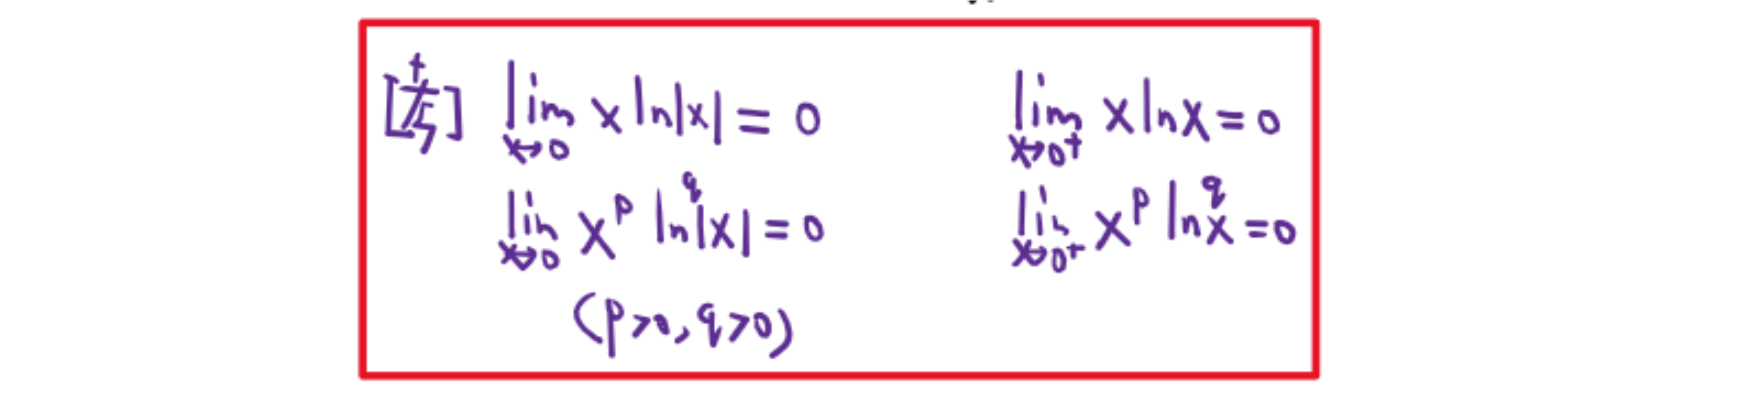 [夯] lim x→0 x ln|x| = 0    lim x→0⁺ x ln x = 0
lim x→0 x^p ln^q|x| = 0    lim x→0⁺ x^p ln^q x = 0
(p>0, q>0)